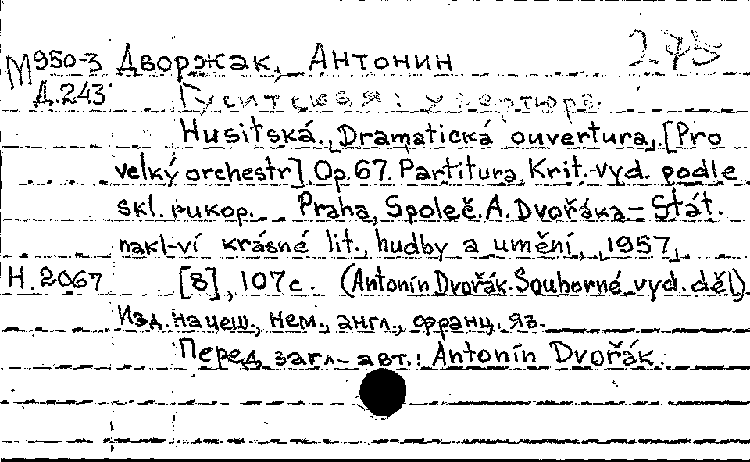 М950-3 Дворжак, Антонин 275
Д.243 Гуситская: увертюра.
Husitská. Dramatická ouvertura, [Pro
velký orchestr] Op.67. Partitura. Krit. vyd. podle
skl. rukop. Praha, Společ. A. Dvořáka – Stát.
nakl-ví krásné lit., hudby a umění, 1957,
Н.2067 [8], 107с. (Antonín Dvořák. Souborné vyd. děl).
Изд. на чеш., нем., англ., франц. яз.
Перед загл. авт.: Antonín Dvořák.